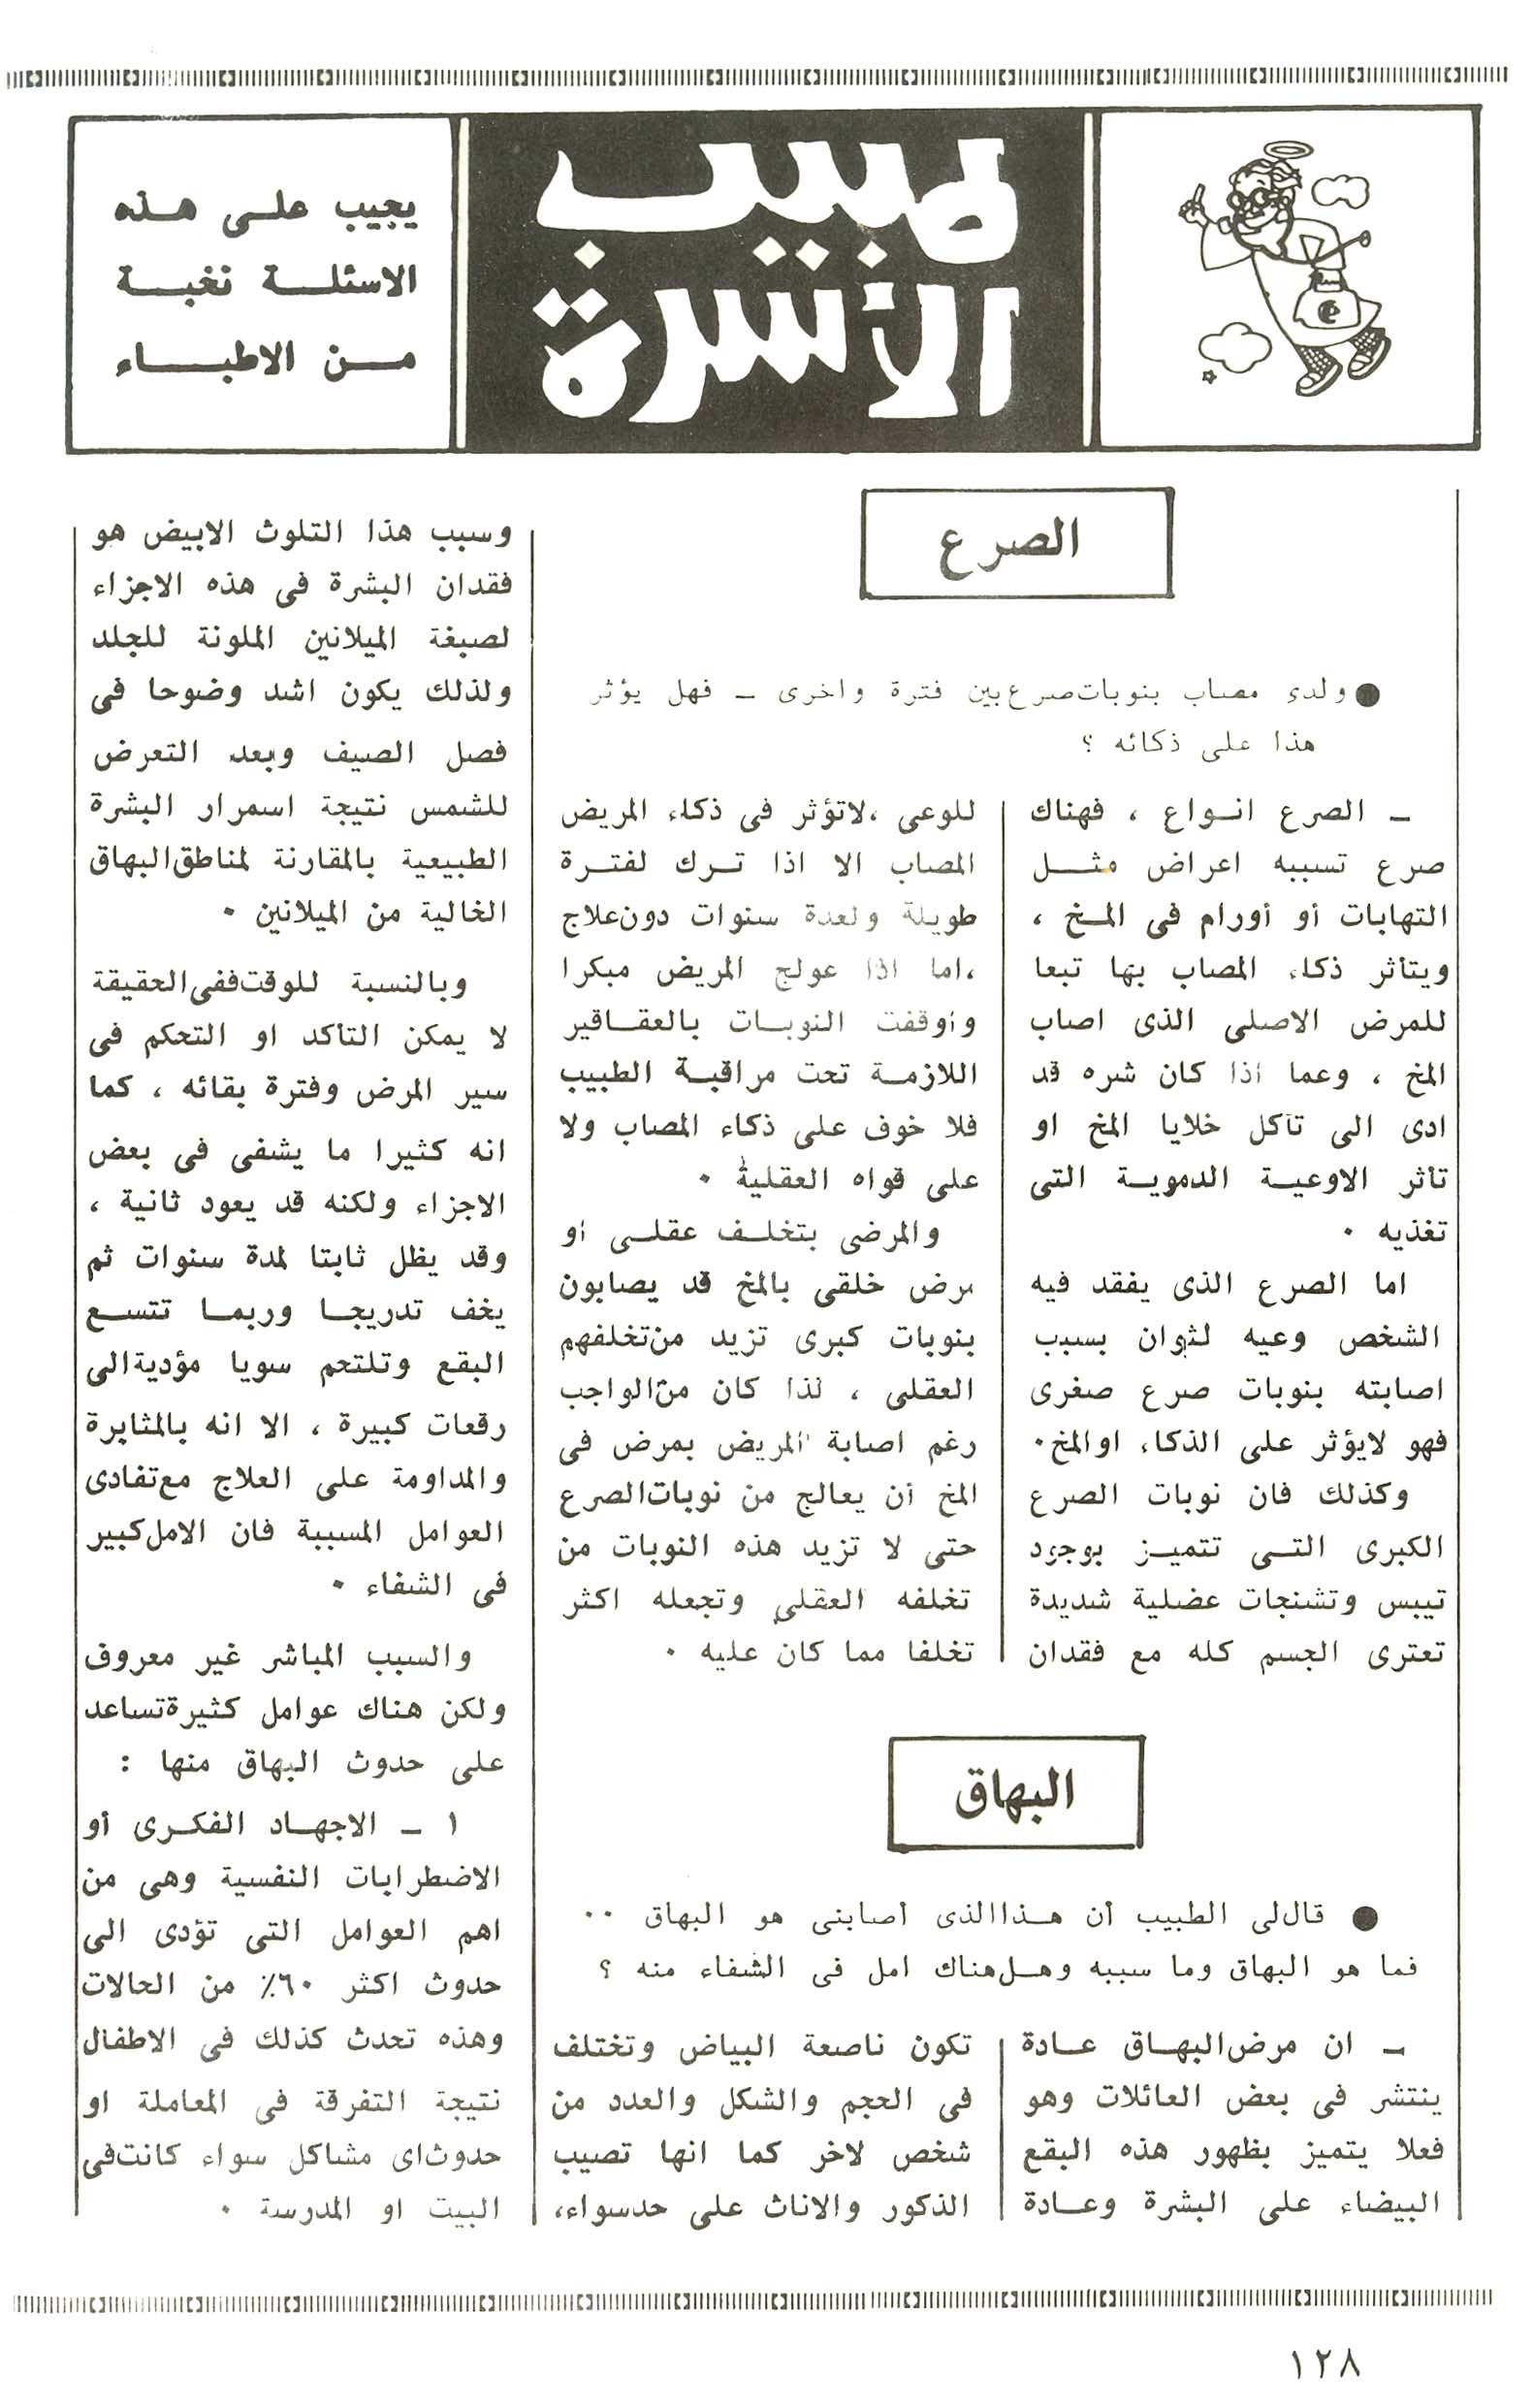 طبيب
الأسرة
يجيب على هذه
الاسئلة نخبة
من الاطباء
الصرع
● ولدى مصاب بنوبات صرع بين فترة واخرى – فهل يؤثر
هذا على ذكائه ؟
– الصرع انواع ، فهناك
صرع تسببه اعراض مثل
التهابات أو أورام فى المخ ،
ويتأثر ذكاء المصاب بها تبعا
للمرض الاصلى الذى اصاب
المخ ، وعما اذا كان شره قد
ادى الى تآكل خلايا المخ او
تأثر الاوعية الدموية التى
تغذيه .
اما الصرع الذى يفقد فيه
الشخص وعيه لثوان بسبب
اصابته بنوبات صرع صغرى
فهو لايؤثر على الذكاء او المخ .
وكذلك فان نوبات الصرع
الكبرى التى تتميز بوجود
تيبس وتشنجات عضلية شديدة
تعترى الجسم كله مع فقدان
للوعى ، لاتؤثر فى ذكاء المريض
المصاب الا اذا ترك لفترة
طويلة ولعدة سنوات دون علاج
، اما اذا عولج المريض مبكرا
وأوقفت النوبات بالعقاقير
اللازمة تحت مراقبة الطبيب
فلا خوف على ذكاء المصاب ولا
على قواه العقلية .
والمرضى بتخلف عقلى أو
مرض خلقى بالمخ قد يصابون
بنوبات كبرى تزيد من تخلفهم
العقلى ، لذا كان من الواجب
رغم اصابة المريض بمرض فى
المخ أن يعالج من نوبات الصرع
حتى لا تزيد هذه النوبات من
تخلفه العقلى وتجعله اكثر
تخلفا مما كان عليه .
البهاق
● قال لى الطبيب أن هذا الذى أصابنى هو البهاق ..
فما هو البهاق وما سببه وهل هناك امل فى الشفاء منه ؟
– ان مرض البهاق عادة
ينتشر فى بعض العائلات وهو
فعلا يتميز بظهور هذه البقع
البيضاء على البشرة وعادة
تكون ناصعة البياض وتختلف
فى الحجم والشكل والعدد من
شخص لاخر كما انها تصيب
الذكور والاناث على حد سواء ،
وسبب هذا التلوث الابيض هو
فقدان البشرة فى هذه الاجزاء
لصبغة الميلانين الملونة للجلد
ولذلك يكون اشد وضوحا فى
فصل الصيف وبعد التعرض
للشمس نتيجة اسمرار البشرة
الطبيعية بالمقارنة لمناطق البهاق
الخالية من الميلانين .
وبالنسبة للوقت ففى الحقيقة
لا يمكن التأكد او التحكم فى
سير المرض وفترة بقائه ، كما
انه كثيرا ما يشفى فى بعض
الاجزاء ولكنه قد يعود ثانية ،
وقد يظل ثابتا لمدة سنوات ثم
يخف تدريجا وربما تتسع
البقع وتلتحم سويا مؤدية الى
رقعات كبيرة ، الا انه بالمثابرة
والمداومة على العلاج مع تفادى
العوامل المسببة فان الامل كبير
فى الشفاء .
والسبب المباشر غير معروف
ولكن هناك عوامل كثيرة تساعد
على حدوث البهاق منها :
١ – الاجهاد الفكرى أو
الاضطرابات النفسية وهى من
اهم العوامل التى تؤدى الى
حدوث اكثر ٦٠٪ من الحالات
وهذه تحدث كذلك فى الاطفال
نتيجة التفرقة فى المعاملة او
حدوث اى مشاكل سواء كانت فى
البيت او المدرسة .
١٢٨